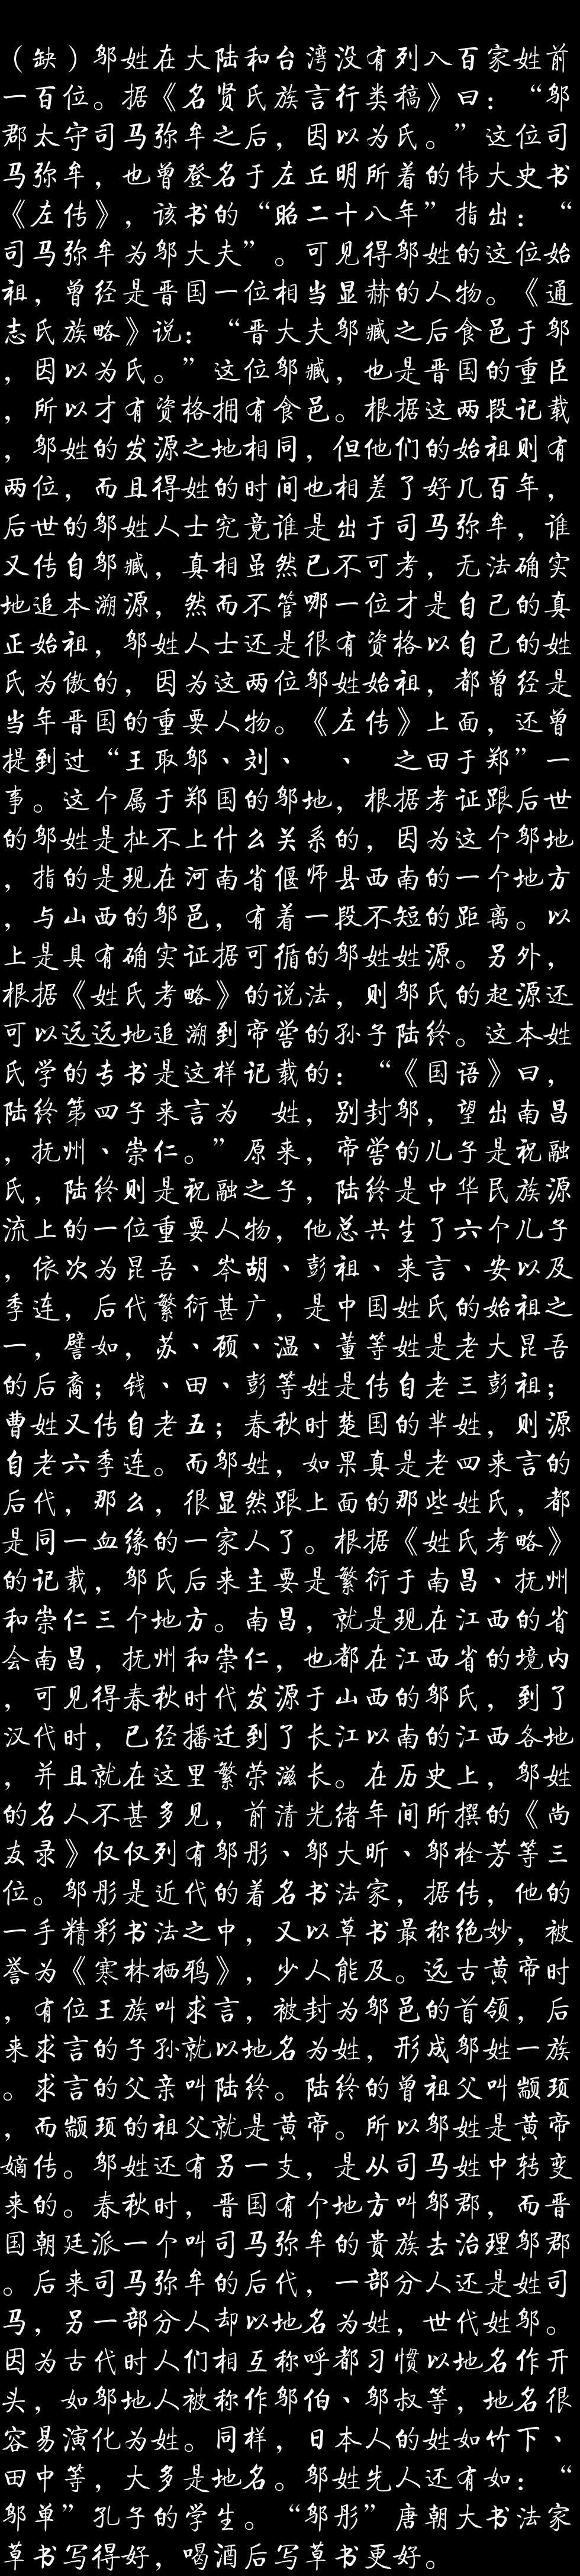 （缺）邬姓在大陆和台湾没有列入百家姓前
一百位。据《名贤氏族言行类稿》曰：“邬
郡太守司马弥牟之后，因以为氏。”这位司
马弥牟，也曾登名于左丘明所着的伟大史书
《左传》，该书的“昭二十八年”指出：“
司马弥牟为邬大夫”。可见得邬姓的这位始
祖，曾经是晋国一位相当显赫的人物。《通
志氏族略》说：“晋大夫邬臧之后食邑于邬
，因以为氏。”这位邬臧，也是晋国的重臣
，所以才有资格拥有食邑。根据这两段记载
，邬姓的发源之地相同，但他们的始祖则有
两位，而且得姓的时间也相差了好几百年，
后世的邬姓人士究竟谁是出于司马弥牟，谁
又传自邬臧，真相虽然已不可考，无法确实
地追本溯源，然而不管哪一位才是自己的真
正始祖，邬姓人士还是很有资格以自己的姓
氏为傲的，因为这两位邬姓始祖，都曾经是
当年晋国的重要人物。《左传》上面，还曾
提到过“王取邬、刘、　、　之田于郑”一
事。这个属于郑国的邬地，根据考证跟后世
的邬姓是扯不上什么关系的，因为这个邬地
，指的是现在河南省偃师县西南的一个地方
，与山西的邬邑，有着一段不短的距离。以
上是具有确实证据可循的邬姓姓源。另外，
根据《姓氏考略》的说法，则邬氏的起源还
可以远远地追溯到帝喾的孙子陆终。这本姓
氏学的专书是这样记载的：“《国语》曰，
陆终第四子来言为　姓，别封邬，望出南昌
，抚州、崇仁。”原来，帝喾的儿子是祝融
氏，陆终则是祝融之子，陆终是中华民族源
流上的一位重要人物，他总共生了六个儿子
，依次为昆吾、岑胡、彭祖、来言、安以及
季连，后代繁衍甚广，是中国姓氏的始祖之
一，譬如，苏、顾、温、董等姓是老大昆吾
的后裔；钱、田、彭等姓是传自老三彭祖；
曹姓又传自老五；春秋时楚国的芈姓，则源
自老六季连。而邬姓，如果真是老四来言的
后代，那么，很显然跟上面的那些姓氏，都
是同一血缘的一家人了。根据《姓氏考略》
的记载，邬氏后来主要是繁衍于南昌、抚州
和崇仁三个地方。南昌，就是现在江西的省
会南昌，抚州和崇仁，也都在江西省的境内
，可见得春秋时代发源于山西的邬氏，到了
汉代时，已经播迁到了长江以南的江西各地
，并且就在这里繁荣滋长。在历史上，邬姓
的名人不甚多见，前清光绪年间所撰的《尚
友录》仅仅列有邬彤、邬大昕、邬栓芳等三
位。邬彤是近代的着名书法家，据传，他的
一手精彩书法之中，又以草书最称绝妙，被
誉为《寒林栖鸦》，少人能及。远古黄帝时
，有位王族叫求言，被封为邬邑的首领，后
来求言的子孙就以地名为姓，形成邬姓一族
。求言的父亲叫陆终。陆终的曾祖父叫颛顼
，而颛顼的祖父就是黄帝。所以邬姓是黄帝
嫡传。邬姓还有另一支，是从司马姓中转变
来的。春秋时，晋国有个地方叫邬郡，而晋
国朝廷派一个叫司马弥牟的贵族去治理邬郡
。后来司马弥牟的后代，一部分人还是姓司
马，另一部分人却以地名为姓，世代姓邬。
因为古代时人们相互称呼都习惯以地名作开
头，如邬地人被称作邬伯、邬叔等，地名很
容易演化为姓。同样，日本人的姓如竹下、
田中等，大多是地名。邬姓先人还有如：“
邬单”孔子的学生。“邬彤”唐朝大书法家
草书写得好，喝酒后写草书更好。